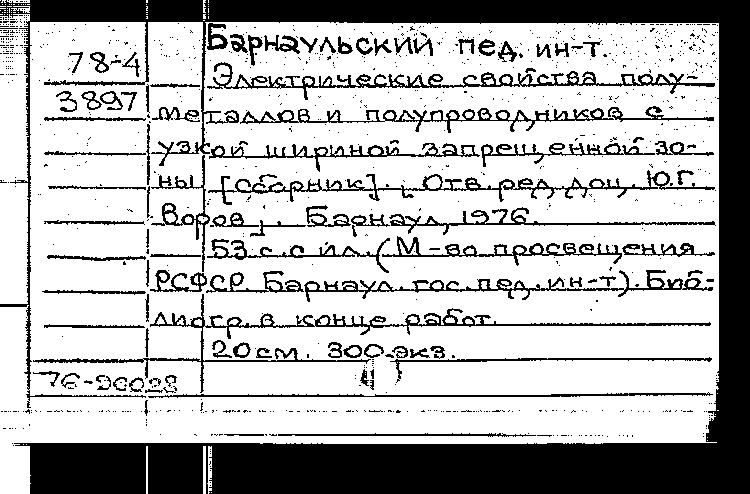 78-4 Барнаульский пед. ин-т.
Электрические свойства полу-
3897 металлов и полупроводников с
узкой шириной запрещенной зо-
ны [сборник]. [Отв. ред. доц. Ю.Г.
Воров]. Барнаул, 1976.
53 с. с ил. (М-во просвещения
РСФСР. Барнаул. гос. пед. ин-т). Биб-
лиогр. в конце работ.
20 см. 300 экз.